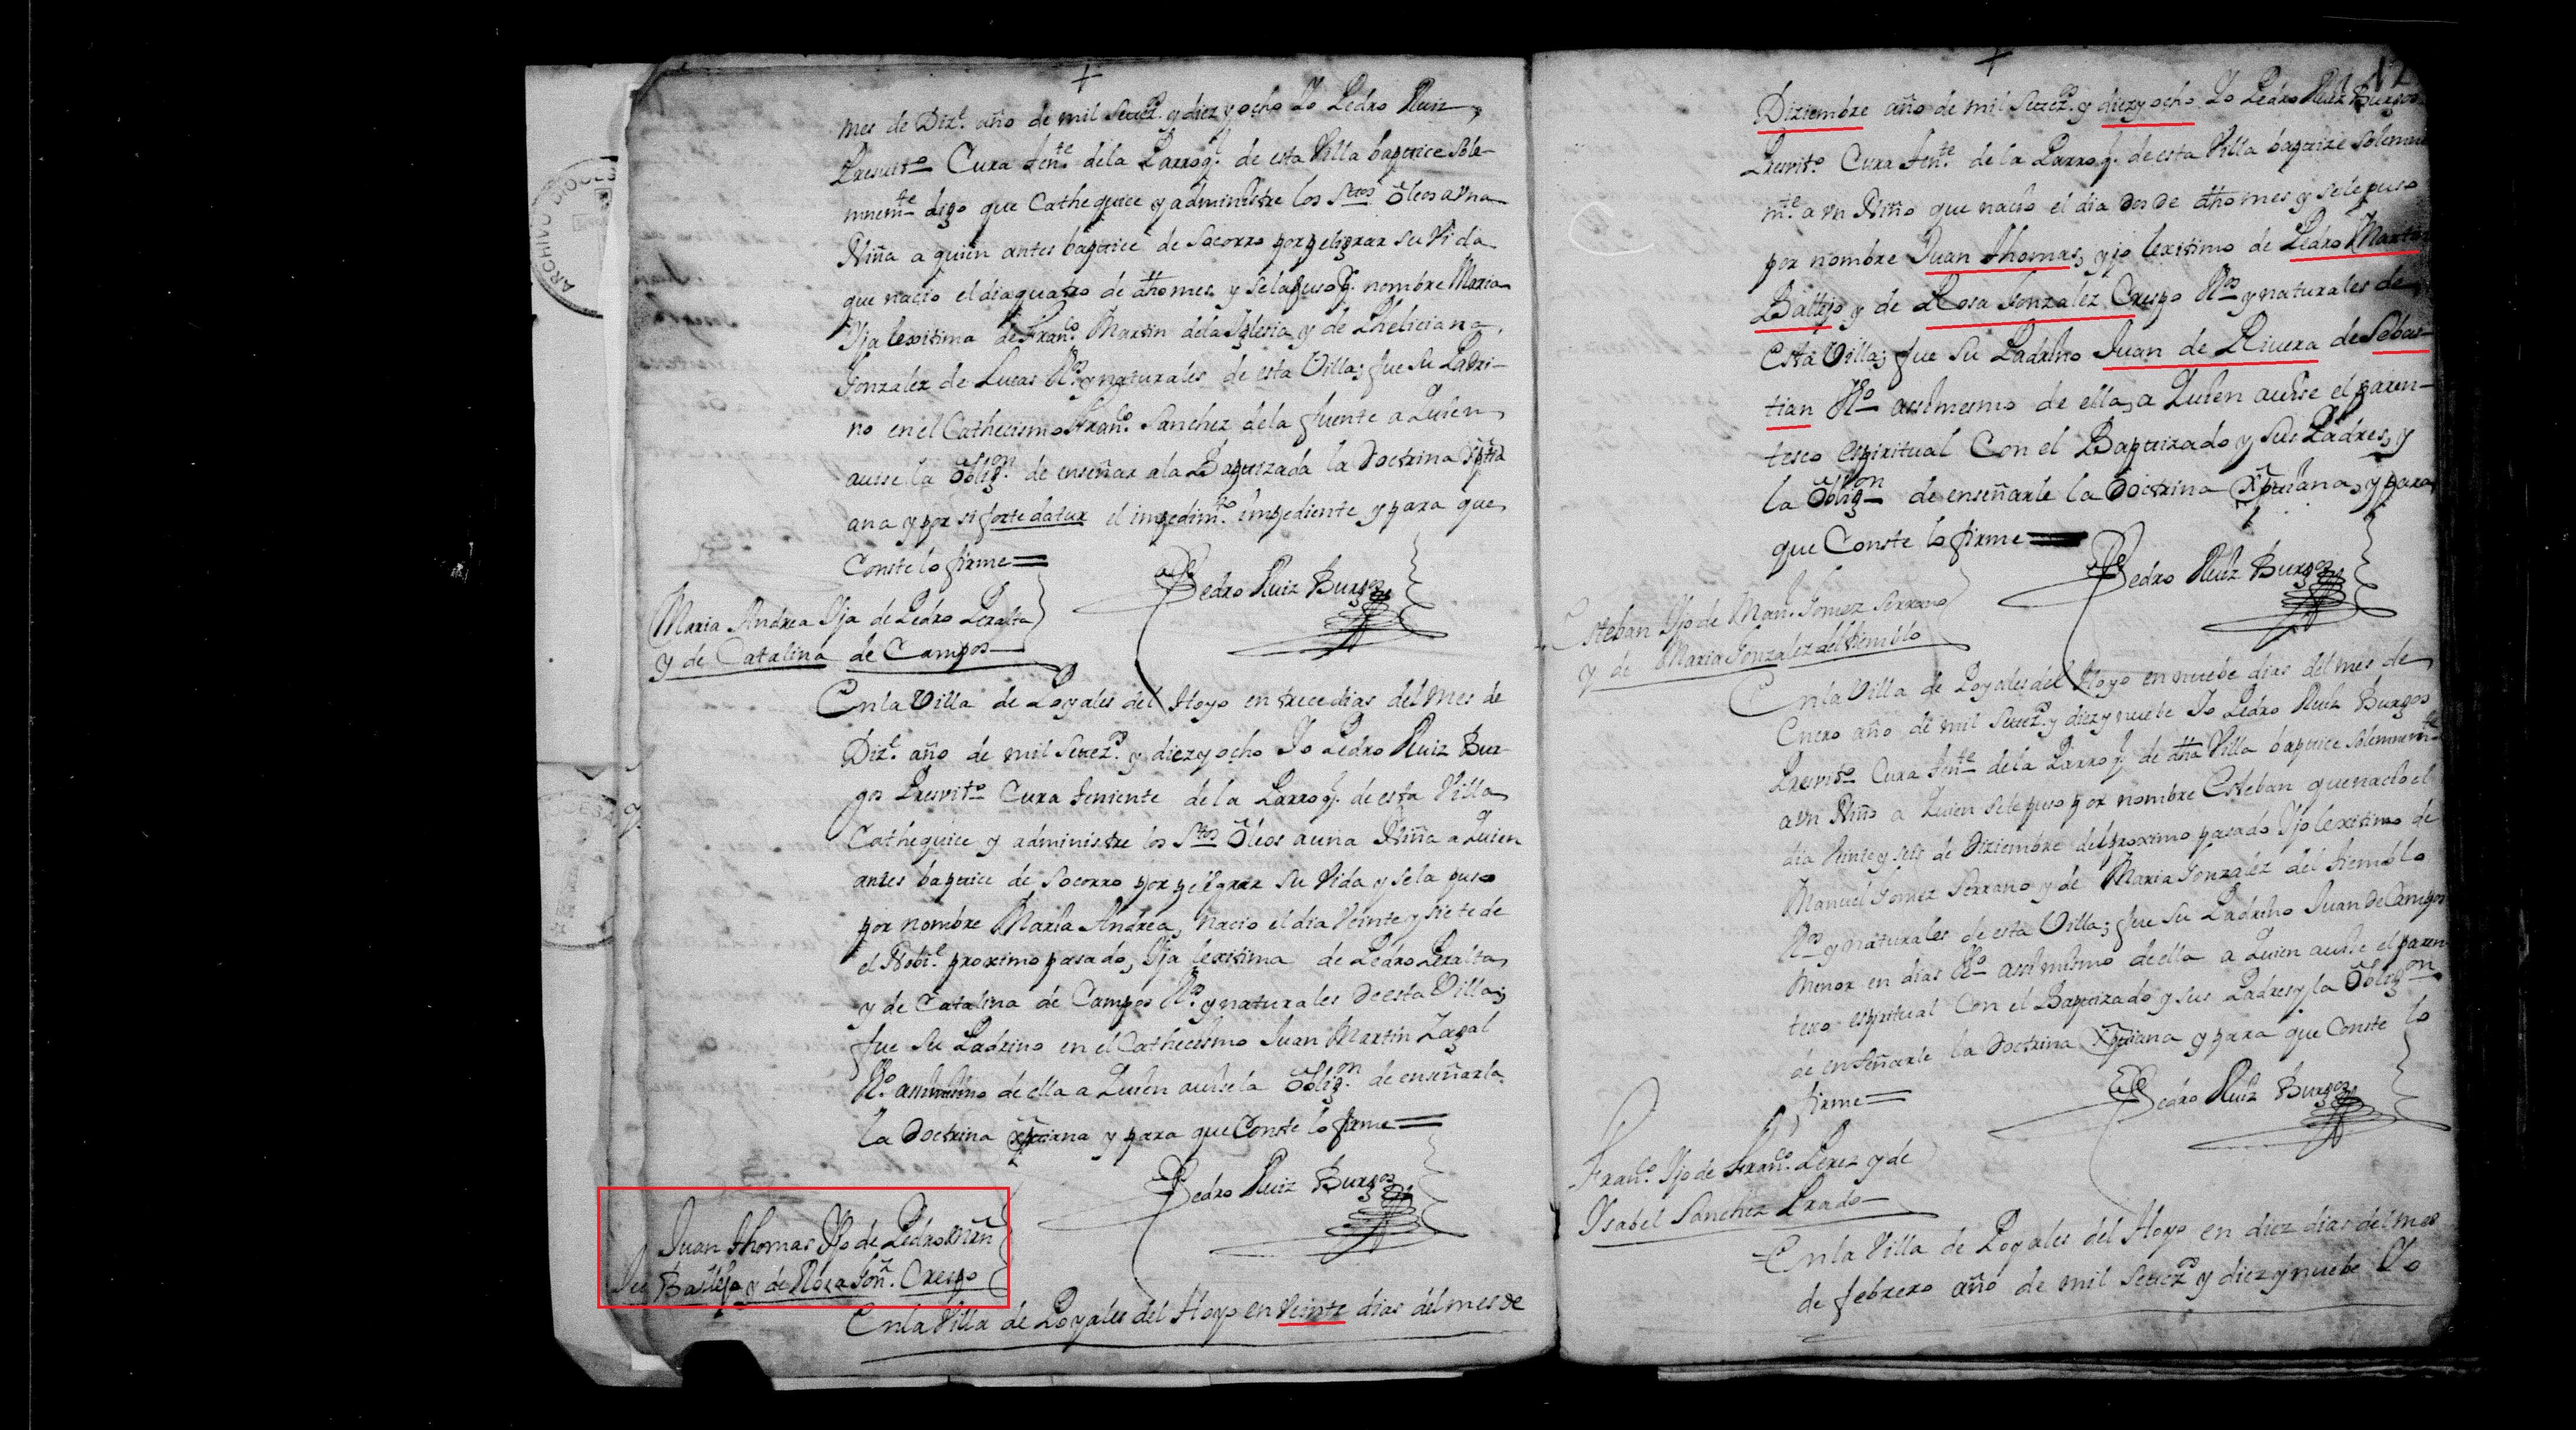 mes de Diz.e año de mil Setez.os y diez y ocho Yo Pedro Ruiz
Presvit.o Cura Ten.te de la Parroq.l de esta Villa baptice Sole-
mnem.te digo que Cathequice y administre los S.tos Oleos a vna
Niña a quien antes baptice de Socorro por peligrar su Vida
que nacio el dia quatro de dho mes y se la puso p.r nombre Maria
Yja lexitima de Fran.co Martin de la Yglesia y de Pheliciana
Gonzalez de Lucas V.os y naturales de esta Villa; fue su Padri-
no en el Cathecismo Fran.co Sanchez de la fuente a Quien
avise la oblig.on de enseñar a la Baptizada la Doctrina Xpti
ana y por si forte datur el impedim.to impediente y para que
Conste lo firme =
Pedro Ruiz Burgos
Maria Andrea Yja de Pedro Peralta
y de Catalina de Campos
En la Villa de Poyales del Hoyo en trece dias del mes de
Diz.e año de mil Setez.os y diez y ocho Yo Pedro Ruiz Bur-
gos Presvit.o Cura Teniente de la Parroq.l de esta Villa
Cathequice y administre los S.tos Oleos a una Niña a Quien
antes baptice de Socorro por peligrar su Vida y se la puso
por nombre Maria Andrea, nacio el dia Veinte y siete de
el Nobi.e proximo pasado, Yja lexitima de Pedro Peralta
y de Catalina de Campos V.os y naturales de esta Villa;
fue su Padrino en el Cathecismo Juan Martin Zagal
V.o assimismo de ella a Quien avise la oblig.on de enseñarla
la Doctrina Xptiana y para que Conste lo firme =
Pedro Ruiz Burgos
Juan Thomas Yjo de Pedro Mrñ
Batllejo y de Rosa Gonz. Crespo
En la Villa de Poyales del Hoyo en Veinte dias del mes de
Diziembre año de mil Setez.os y diez y ocho Yo Pedro Ruiz Burgos
Presvit.o Cura Ten.te de la Parroq.l de esta Villa baptize Solemne
m.te a vn Niño que nacio el dia dos de dho mes y se le puso
por nombre Juan Thomas, yjo lexitimo de Pedro Martin
Batllejo y de Rosa Gonzalez Crespo V.os y naturales de
esta Villa; fue su Padrino Juan de Rivera de Sebas-
tian V.o assimesmo de ella, a Quien avise el paren-
tesco espiritual Con el Baptizado y sus Padres, y
la oblig.on de enseñarle la Doctrina Xptiana, y para
que Conste lo firme =
Pedro Ruiz Burgos
Esteban Yjo de Man.l Gomez Serrano
y de Maria Gonzalez del tiemblo
En la Villa de Poyales del Hoyo en nuebe dias del mes de
Enero año de mil Setez.os y diez y nuebe Yo Pedro Ruiz Burgos
Presvit.o Cura Ten.te de la Parroq.l de dha Villa baptice Solemnem.te
a vn Niño a Quien se le puso por nombre Esteban que nacio el
dia Veinte y seis de Diziembre del proximo pasado Yjo lexitimo de
Manuel Gomez Serrano y de Maria Gonzalez del tiemblo
V.os y naturales de esta Villa; fue su Padrino Juan de Campos
menor en dias V.o assimismo de ella a Quien avise el paren
tesco espiritual Con el Baptizado y sus Padres y la oblig.on
de enseñarle la Doctrina Xptiana y para que Conste lo
firme =
Pedro Ruiz Burgos
Fran.co Yjo de Fran.co Perez y de
Ysabel Sanchez Prado
En la Villa de Poyales del Hoyo en diez dias del mes
de febrero año de mil Setez.os y diez y nuebe Yo